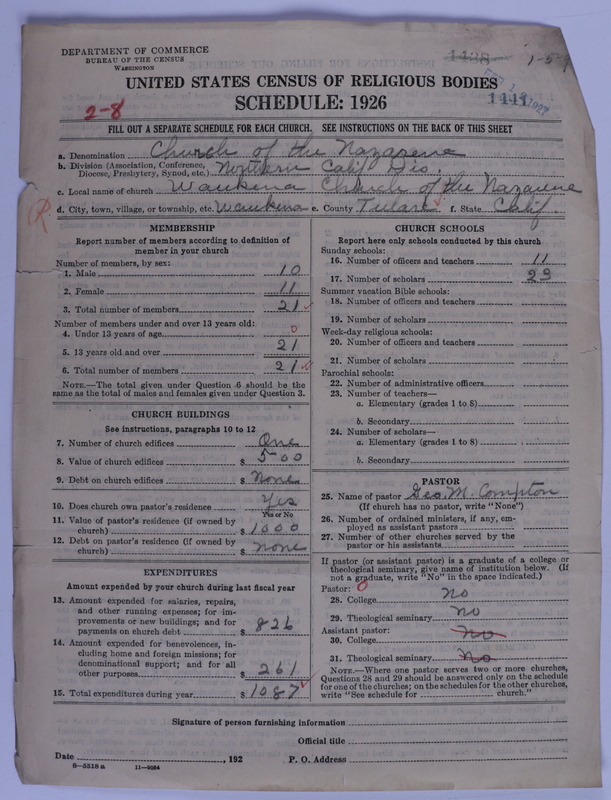 DEPARTMENT OF COMMERCE
BUREAU OF THE CENSUS
WASHINGTON
1438
1-5-9
UNITED STATES CENSUS OF RELIGIOUS BODIES
SCHEDULE: 1926
2-8
1441
1927
FILL OUT A SEPARATE SCHEDULE FOR EACH CHURCH. SEE INSTRUCTIONS ON THE BACK OF THIS SHEET
a. Denomination Church of the Nazarene
b. Division (Association, Conference, Diocese, Presbytery, Synod, etc.) Northern Calif Dis.
c. Local name of church Waukena Church of the Nazarene
d. City, town, village, or township, etc. Waukena e. County Tulare f. State Calif.
MEMBERSHIP
Report number of members according to definition of
member in your church
Number of members, by sex:
1. Male 10
2. Female 11
3. Total number of members 21
Number of members under and over 13 years old:
4. Under 13 years of age 0
5. 13 years old and over 21
6. Total number of members 21
NOTE.—The total given under Question 6 should be the
same as the total of males and females given under Question 3.
CHURCH BUILDINGS
See instructions, paragraphs 10 to 12
7. Number of church edifices One
8. Value of church edifices $ 500
9. Debt on church edifices $ None
10. Does church own pastor's residence Yes
Yes or No
11. Value of pastor's residence (if owned by
church) $ 1000
12. Debt on pastor's residence (if owned by
church) $ none
EXPENDITURES
Amount expended by your church during last fiscal year
13. Amount expended for salaries, repairs,
and other running expenses; for im-
provements or new buildings; and for
payments on church debt $ 826
14. Amount expended for benevolences, in-
cluding home and foreign missions; for
denominational support; and for all
other purposes $ 261
15. Total expenditures during year $ 1087
CHURCH SCHOOLS
Report here only schools conducted by this church
Sunday schools:
16. Number of officers and teachers 11
17. Number of scholars 29
Summer vacation Bible schools:
18. Number of officers and teachers
19. Number of scholars
Week-day religious schools:
20. Number of officers and teachers
21. Number of scholars
Parochial schools:
22. Number of administrative officers
23. Number of teachers—
a. Elementary (grades 1 to 8)
b. Secondary
24. Number of scholars—
a. Elementary (grades 1 to 8)
b. Secondary
PASTOR
25. Name of pastor Geo. M. Compton
(If church has no pastor, write "None")
26. Number of ordained ministers, if any, em-
ployed as assistant pastors
27. Number of other churches served by the
pastor or his assistants
If pastor (or assistant pastor) is a graduate of a college or
theological seminary, give name of institution below. (If
not a graduate, write "No" in the space indicated.)
Pastor: 0
28. College no
29. Theological seminary no
Assistant pastor:
30. College no
31. Theological seminary no
NOTE.—Where one pastor serves two or more churches,
Questions 28 and 29 should be answered only on the schedule
for one of the churches; on the schedules for the other churches,
write "See schedule for church."
Signature of person furnishing information
Official title
Date , 192 P. O. Address
8—5518 a 11—9954